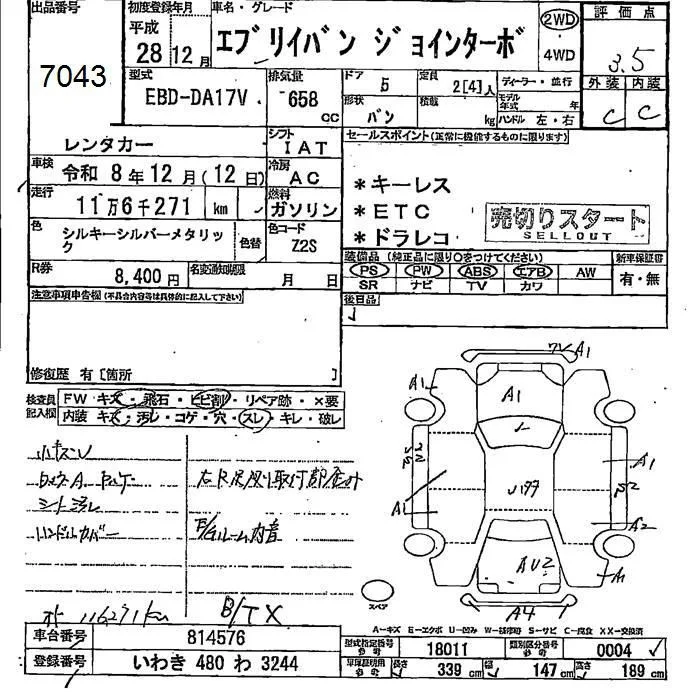 出品番号 初度登録年月 車名・グレード 評価点
平成 28年 12月 エブリイバン ジョインターボ 2WD 4WD 3.5
7043
型式 排気量 ドア 5 定員 2[4]人 ディーラー・並行 外装 内装
EBD-DA17V 658 CC 形状 バン 積載 kg モデル年式 年 ハンドル 左・右 C C
レンタカー シフト IAT セールスポイント(正常に機能するものに限ります)
車検 令和 8年 12月 (12日) 冷房 AC
走行 11万6千271 km 燃料 ガソリン
*キーレス
*ETC
*ドラレコ
売切りスタート
SELLOUT
色 シルキーシルバーメタリック 色替 色コード Z2S
装備品(純正品に限り○をつけてください) 新車保証書
PS PW ABS エアB AW 有・無
SR ナビ TV カワ
R券 8,400円 名変通知期限 月 日
後日品
注意事項申告欄(不具合内容等は具体的に記入して下さい)
修復歴 有[箇所 ]
検査員記入欄 FW キズ・飛石・ヒビ割・リペア跡・×要
内装 キズ・汚レ・コゲ・穴・スレ・キレ・破レ
小キズ
シート汚レ
ハンドルカバー
E/Gルーム内音
116271km
B/TX
A1
A1
A1
A1
U177
A1
A2
A1
AU2
A4
スペア
A-キズ E-エクボ U-凹み W-補修跡 S-サビ C-腐食 XX-交換済
車台番号 814576 型式指定番号 18011 類別区分番号 0004
登録番号 いわき 480 わ 3244 長さ 339 cm 幅 147 cm 高さ 189 cm